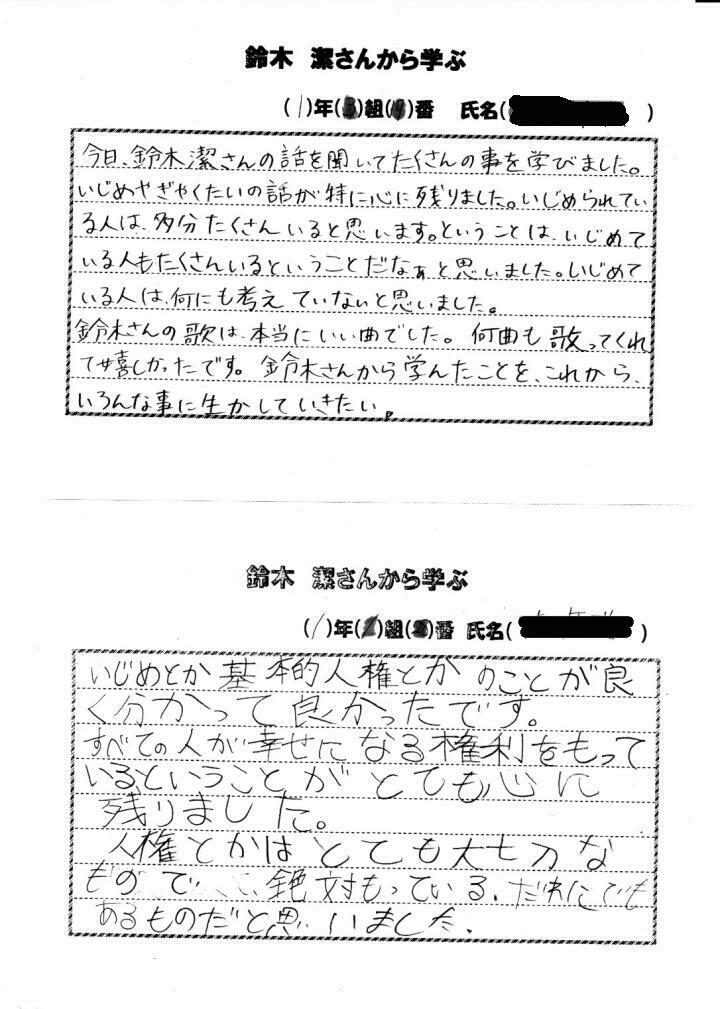 鈴木 潔さんから学ぶ
(1)年(3)組(14)番 氏名( )
今日、鈴木潔さんの話を聞いてたくさんの事を学びました。
いじめやぎゃくたいの話が特に心に残りました。いじめられてい
る人は、多分たくさんいると思います。ということは、いじめて
いる人もたくさんいるということだなぁと思いました。いじめて
いる人は、何にも考えていないと思いました。
鈴木さんの歌は、本当にいい曲でした。何曲も歌ってくれ
て嬉しかったです。鈴木さんから学んたことを、これから、
いろんな事に生かしていきたい。
鈴木 潔さんから学ぶ
(1)年( )組( )番 氏名( )
いじめとか基本的人権とかのことが良
く分かって良かったです。
すべての人が幸せになる権利をもって
いるということがとても心に
残りました。
人権とかはとても大切な
もので、絶対もっている、だれにでも
あるものだと思いました。